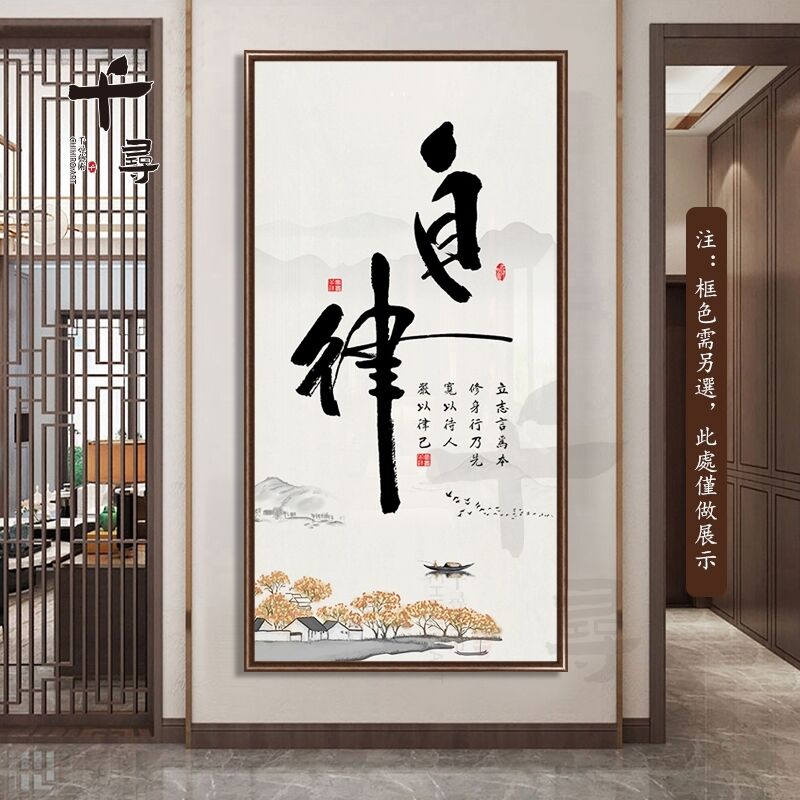 千尋
千尋藝術
CHIHIROART
自律
立志言為本
修身行乃先
寬以待人
嚴以律己
千尋
注：框色需另選，此處僅做展示